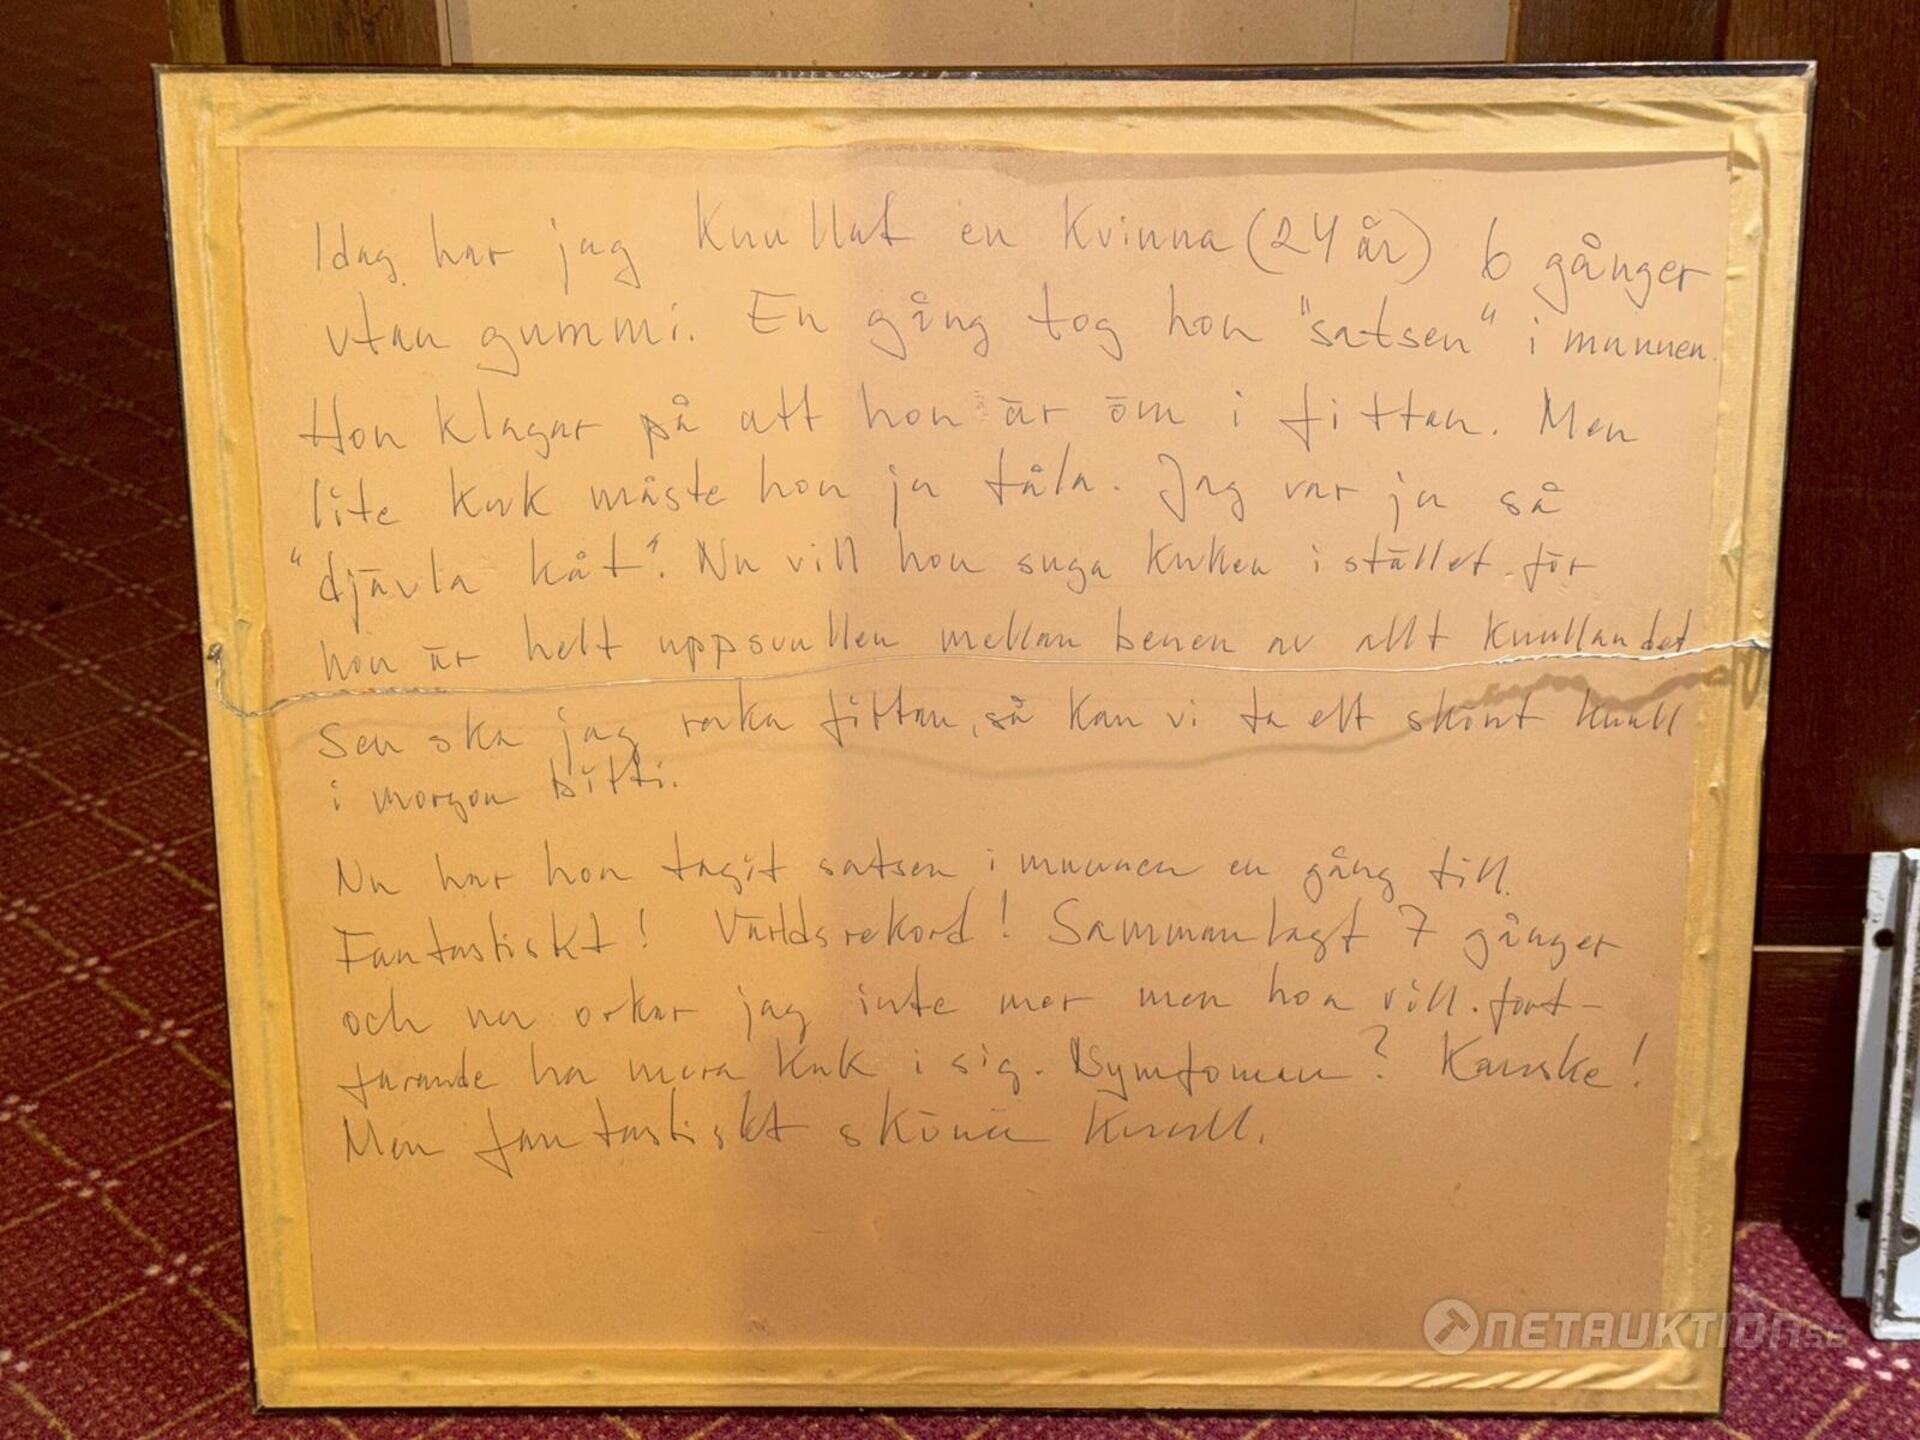 Idag har jag Knullat en Kvinna (24 år) 6 gånger
utan gummi. En gång tog hon "satsen" i munnen.
Hon klagar på att hon är öm i fittan. Men
lite kuk måste hon ju tåla. Jag var ju så
"djävla kåt". Nu vill hon suga kuken i stället för
hon är helt uppsvullen mellan benen av allt knullandet
Sen ska jag raka fittan, så kan vi ta ett skönt knull
i morgon bitti.
Nu har hon tagit satsen i munnen en gång till.
Fantastiskt! Världsrekord! Sammanlagt 7 gånger
och nu orkar jag inte mer men hon vill fort-
farande ha mera kuk i sig. Nymfoman? Kanske!
Men fantastiskt sköna knull.
NETAUKTION.SE